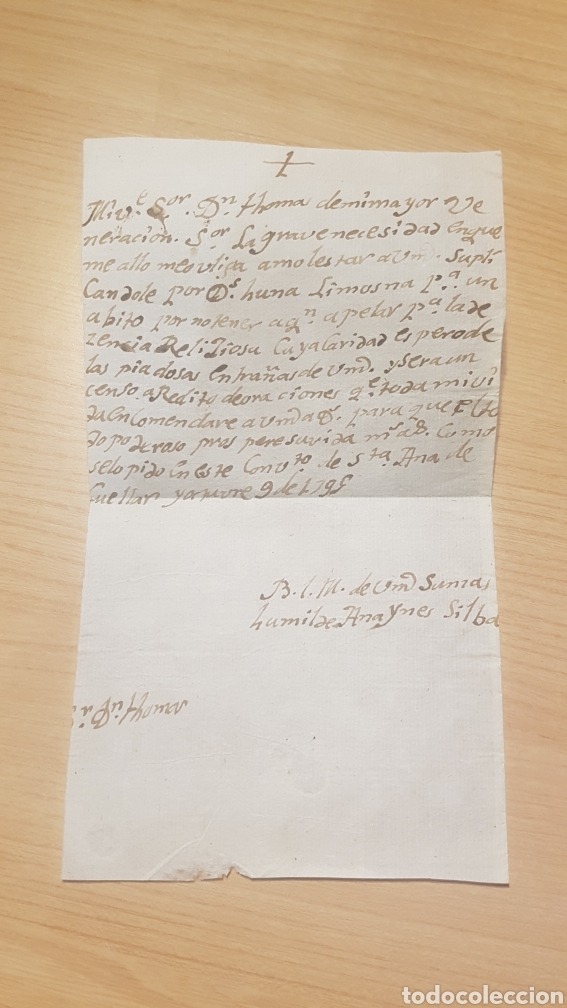 Muy e Sor. Dn. thoma demimayor Ve
neracion. Sor. La gravenecesidad enque
me allo meovliga amolestar avmd. Supli
Candole por Ds. huna Limosna pa. un
abito pornotener aqn. apelar pa. lade
zencia Reliziosa Cuyacaridad esperode
las piadosas entrañasdevmd. ysera un
censo aRedito deoraciones qe. todamivi
da enComendare avmd a Ds. para que elto
dopoderoso prospere suvida ms. as. Como
selopido en este Convto. de Sta. Ana de
Cuellar yoctuvre 9 de 1795
B. l. M. de vmd Sumas
humilde Ana Ynes Silba
Sr. Dn. thomas
todocoleccion